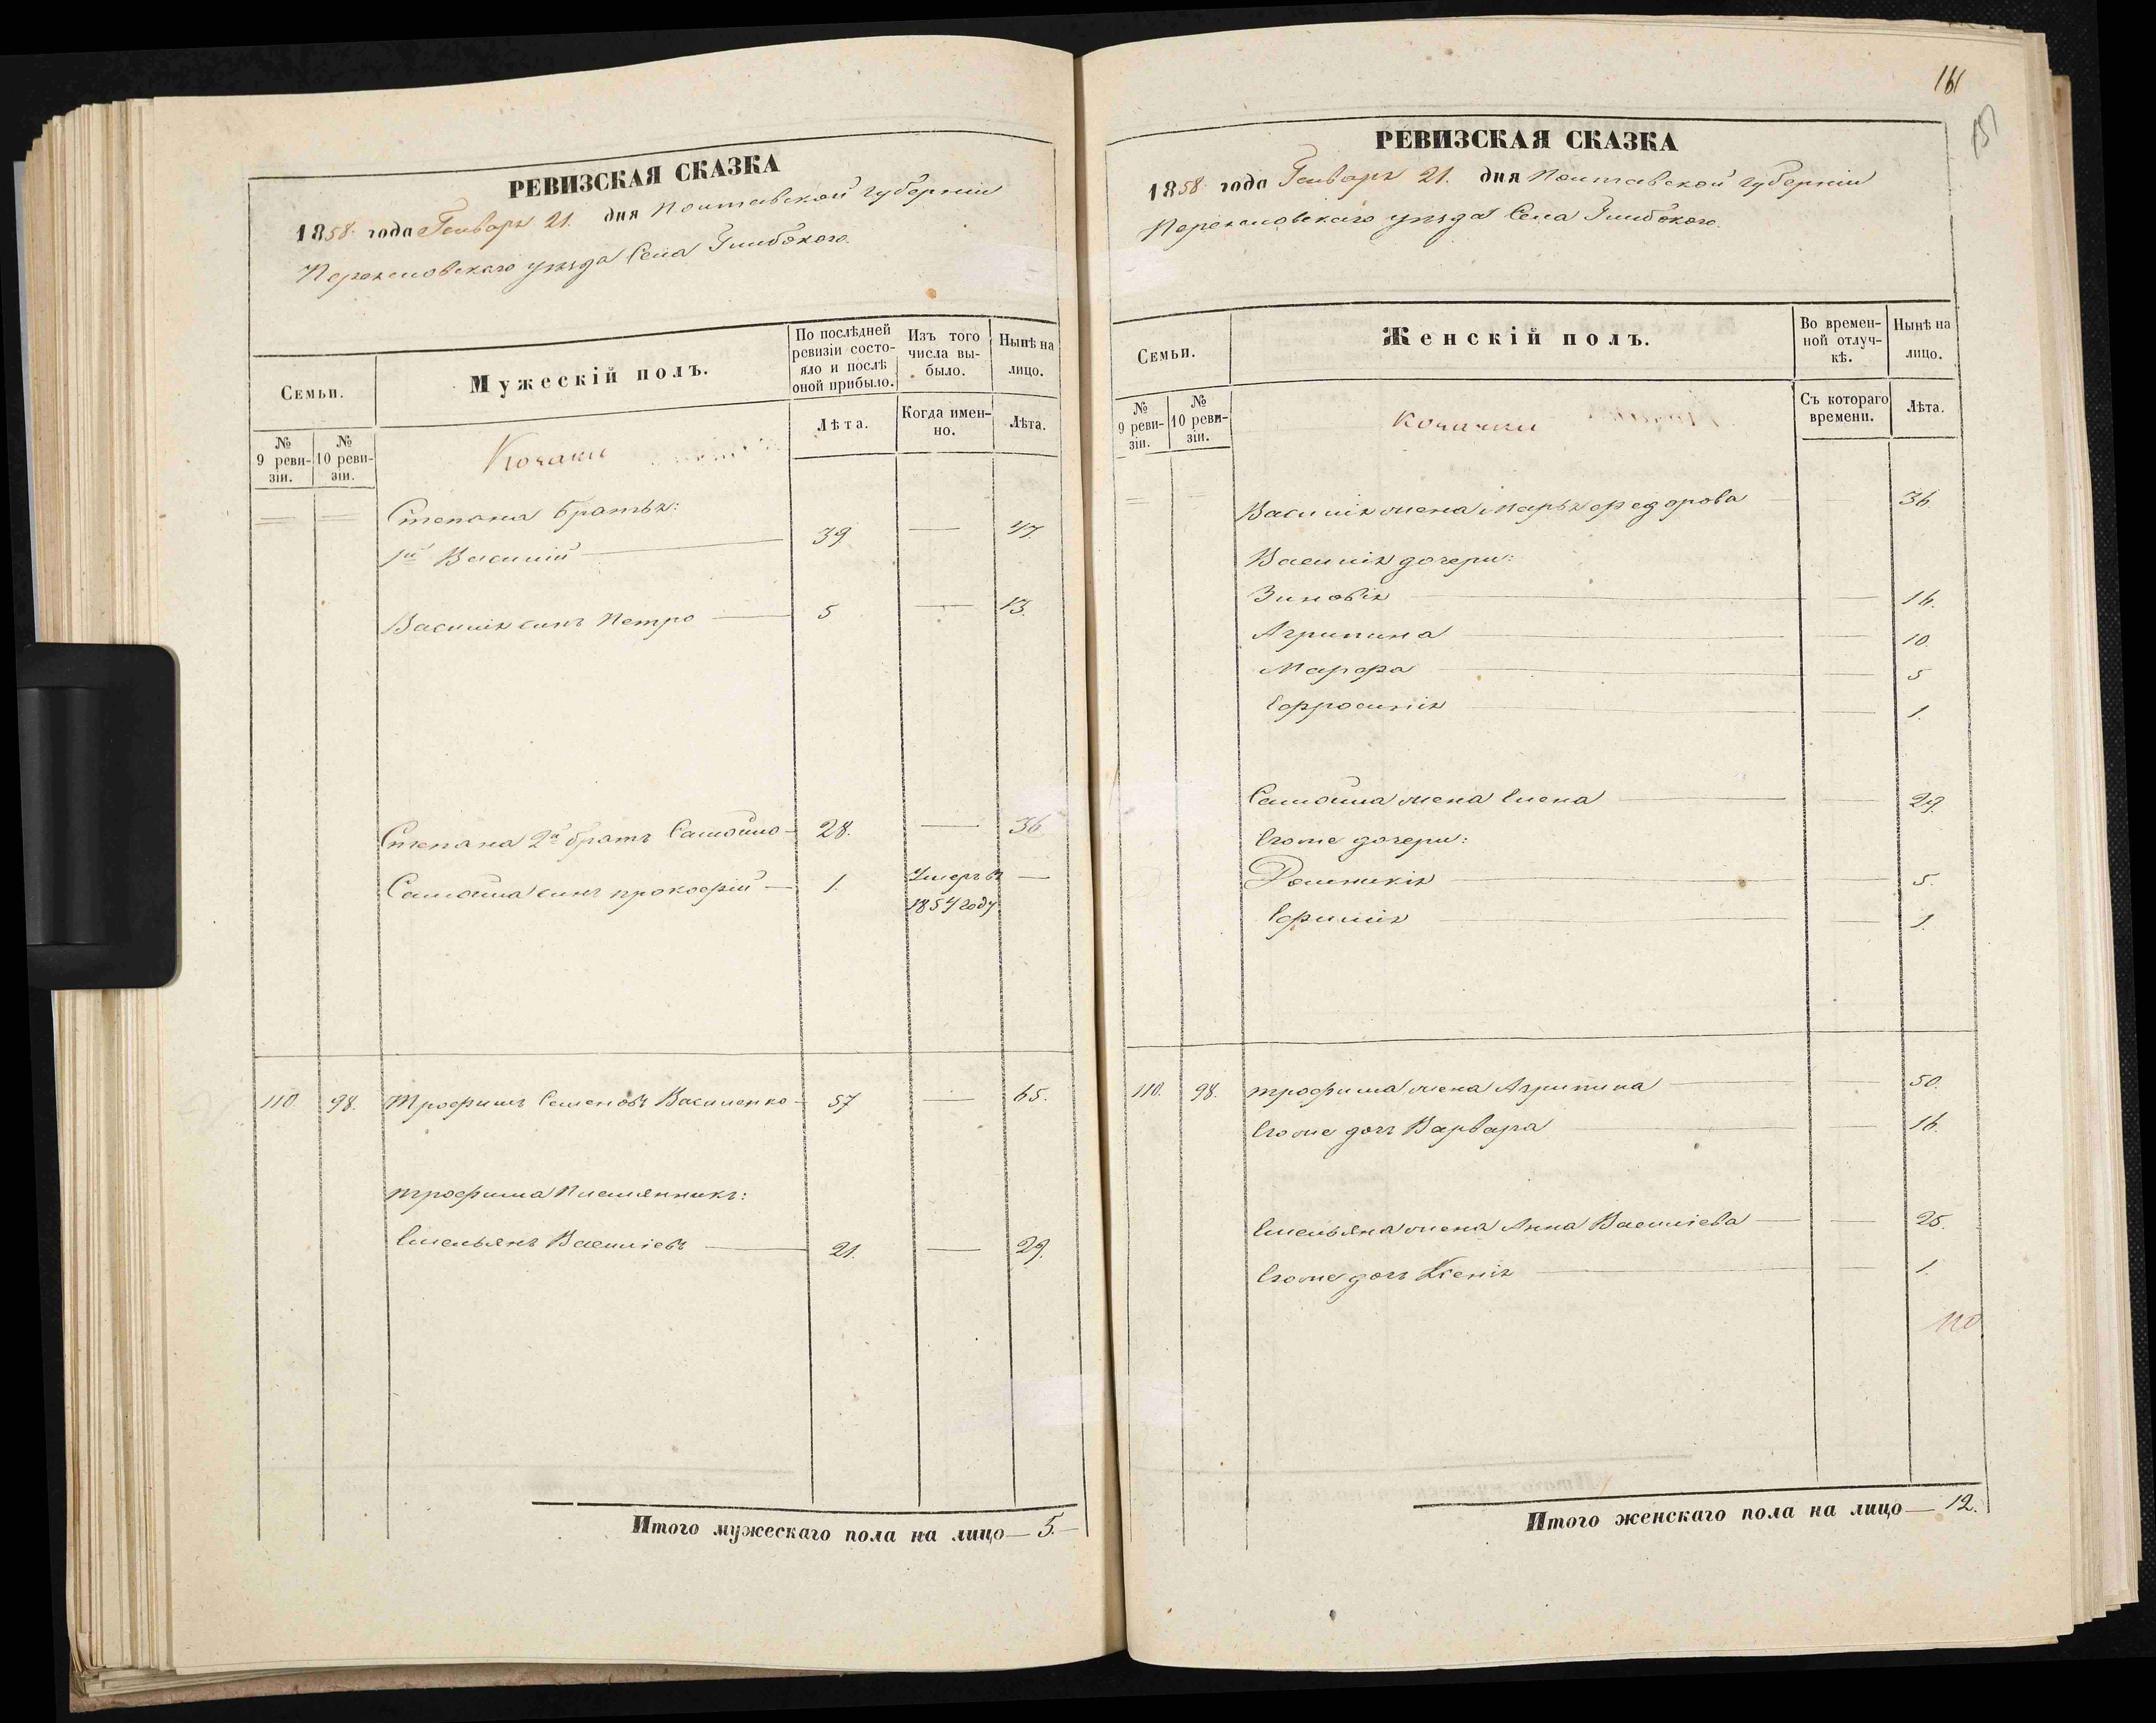 РЕВИЗСКАЯ СКАЗКА
1858 года Генваря 21. дня Полтавской губернiи
Переяславскаго уѣзда Села Глибокого.
Семьи.
Мужескій полъ.
По послѣдней ревизіи состояло и послѣ оной прибыло.
Изъ того числа выбыло.
Нынѣ на лицо.
№ 9 ревизіи.
№ 10 ревизіи.
Лѣта.
Когда именно.
Лѣта.
Козаки
Степана братья:
1й Василій — 39 — 47.
Василія сынъ Петро — 5 — 13.
Степана 2й братъ Самойло — 28. — 36
Самойла сынъ прокофій — 1. Умеръ въ —
1854 году
110. 98. Трофимъ Семеновъ Василенко — 57 — 65.
трофима Племянникъ:
Емельянъ Василіевъ — 21. — 29.
Итого мужескаго пола на лицо — 5. —
161
РЕВИЗСКАЯ СКАЗКА
1858 года Генваря 21. дня Полтавской губерніи
Переяславскаго уѣзда Села Глибокого.
Семьи.
Женскій полъ.
Во временной отлучкѣ.
Нынѣ на лицо.
№ 9 ревизіи.
№ 10 ревизіи.
Съ котораго времени.
Лѣта.
Козачки
Василія жена Марья федорова — 36.
Василія дочери:
Зиновія — 16.
Агрипина — 10.
Марфа — 5
Ефросинія — 1.
Самойла жена Елена — 29.
Егоже дочери:
— 5.
— 1.
110. 98. трофима жена Агрипина — 50.
Егоже дочь Варвара — 16.
Емельяна жена Анна Василіева — 25.
Егоже дочь Ксенія — 1.
110
Итого женскаго пола на лицо — 12.